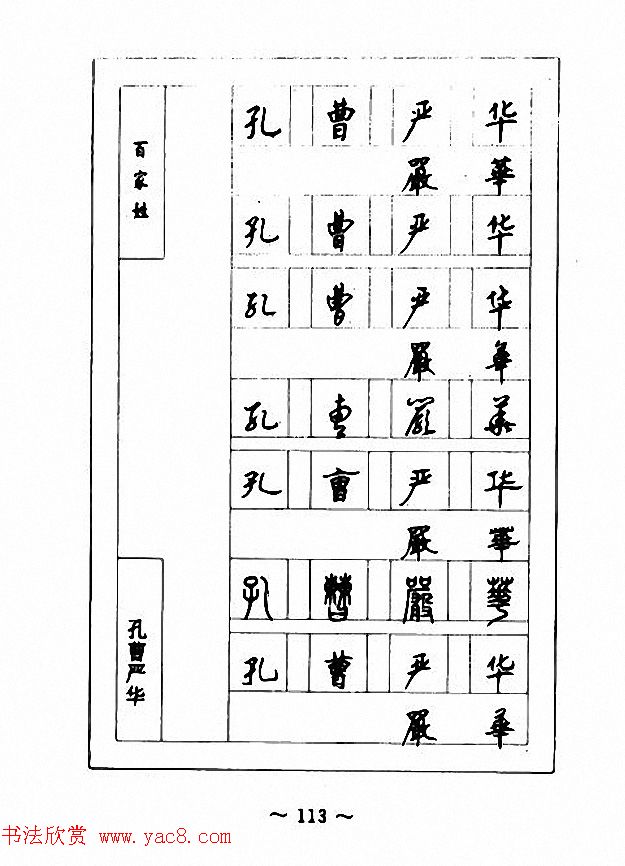 百家姓
孔 曹 严 华
嚴 華
孔 曹 严 华
孔 曹 严 华
嚴 華
孔 曹 嚴 華
孔 曹 严 华
嚴 華
孔 曹 嚴 華
孔 曹 严 华
嚴 華
孔曹严华
~ 113 ~
书法欣赏 www.yac8.com